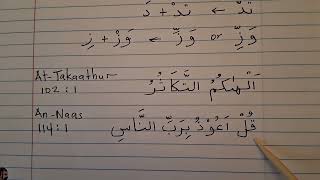 تَدَّ ← تَدْ + دَ
وَزِّ or وَزِّ ← وَزْ + زِ
At-Takaathur 102:1 اَلْهٰىكُمُ التَّكَاثُرُ
An-Naas 114:1 قُلْ اَعُوْذُ بِرَبِّ النَّاسِ